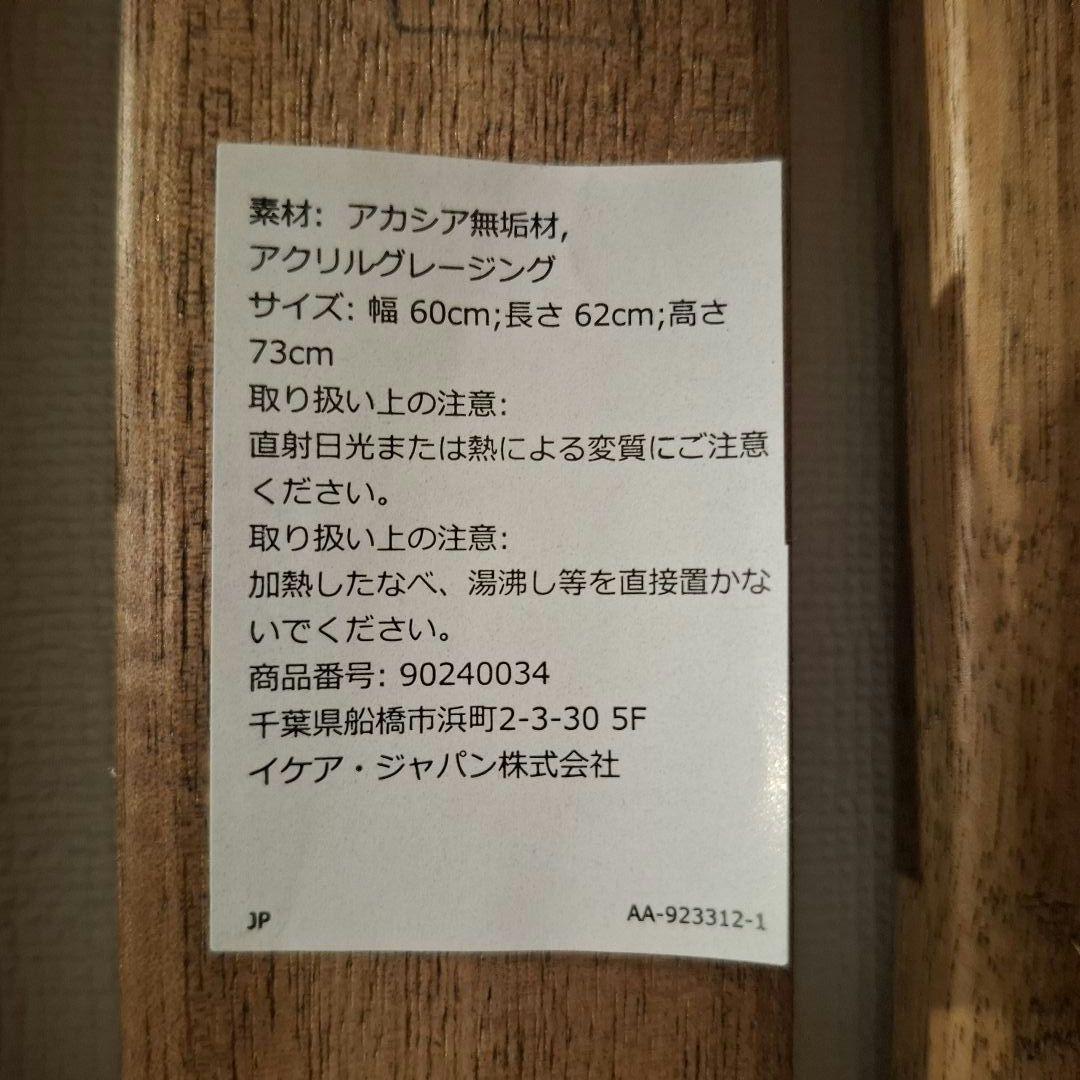 素材: アカシア無垢材,
アクリルグレージング
サイズ: 幅 60cm;長さ 62cm;高さ
73cm
取り扱い上の注意:
直射日光または熱による変質にご注意
ください。
取り扱い上の注意:
加熱したなべ、湯沸し等を直接置かな
いでください。
商品番号: 90240034
千葉県船橋市浜町2-3-30 5F
イケア・ジャパン株式会社
JP
AA-923312-1